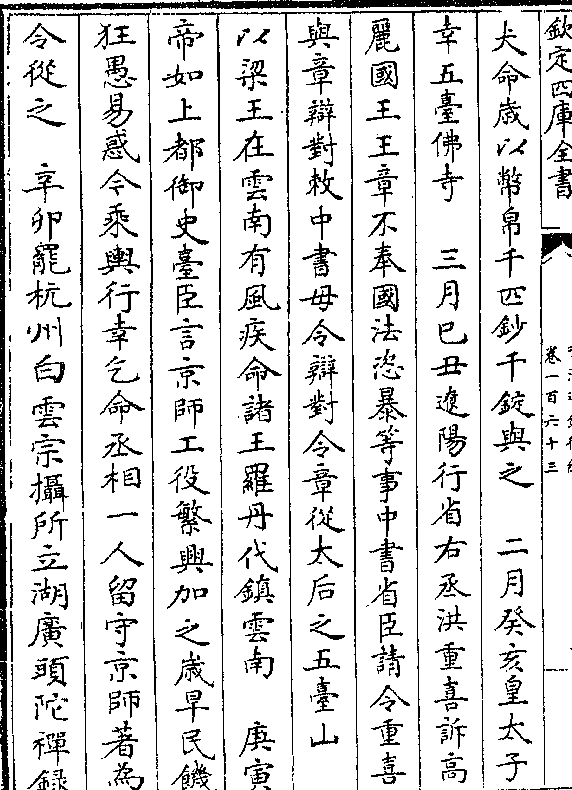 欽定四庫全書
卷一百六十三
夫命歳以幣帛千匹鈔千錠與之　二月癸亥皇太子
幸五臺佛寺　三月已丑遼陽行省右丞洪重喜訴高
麗國王王章不奉國法恣暴等事中書省臣請令重喜
與章辯對敕中書毋令辯對令章從太后之五臺山
以梁王在雲南有風疾命諸王羅丹代鎮雲南　庚寅
帝如上都御史臺臣言京師工役繁興加之歳旱民饑
狂愚易惑令乘輿行幸乞命丞相一人留守京師著為
令從之　辛卯罷杭州白雲宗攝所立湖廣頭陀禪錄